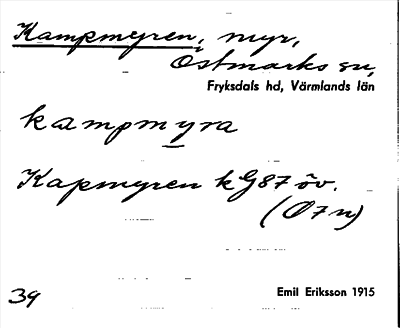 Kampmyren, myr,
i
Östmarks sn,
Fryksdals hd, Värmlands län
kampmyra
Kapmyren kG87 öv.
(Ö7n)
39
Emil Eriksson 1915